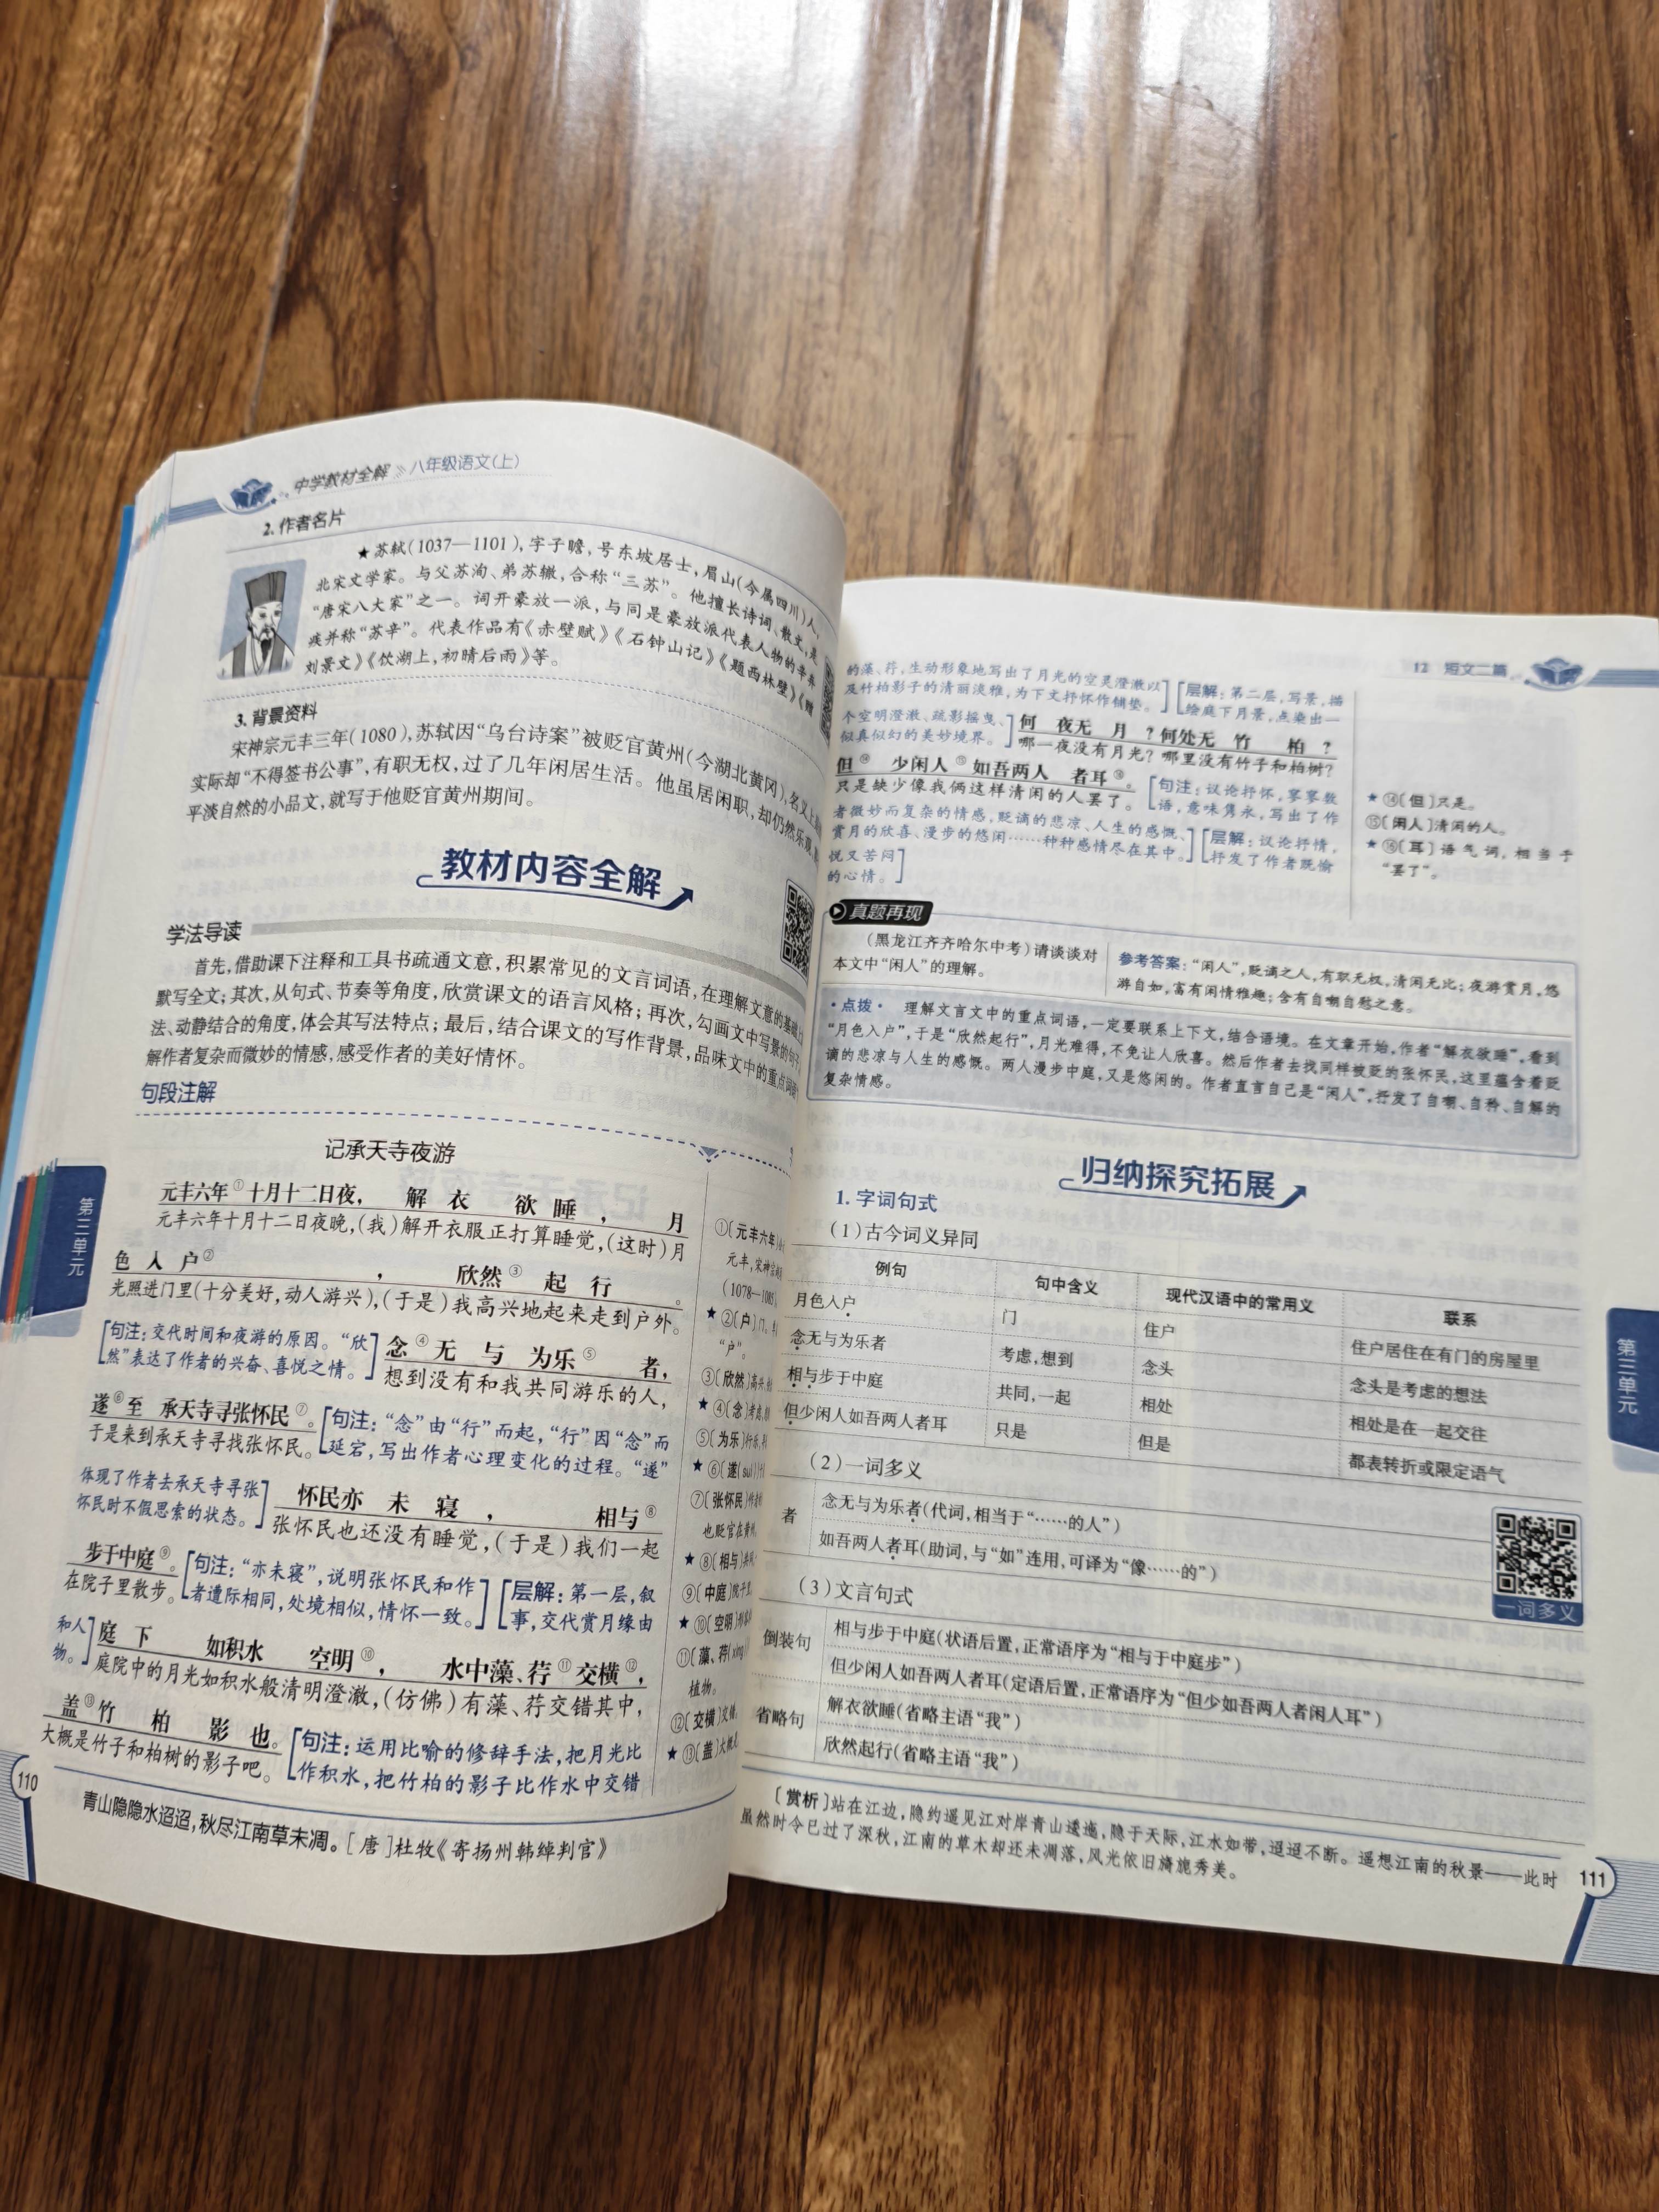 中学教材全解》八年级语文(上)
2. 作者名片
★苏轼(1037—1101),字子瞻,号东坡居士,眉山(今属四川)人,
北宋文学家。与父苏洵、弟苏辙,合称“三苏”。他擅长诗词、散文,是
“唐宋八大家”之一。词开豪放一派,与同是豪放派代表人物的辛弃
疾并称“苏辛”。代表作品有《赤壁赋》《石钟山记》《题西林壁》《赠
刘景文》《饮湖上,初晴后雨》等。
3. 背景资料
宋神宗元丰三年(1080),苏轼因“乌台诗案”被贬官黄州(今湖北黄冈),名义上
实际却“不得签书公事”,有职无权,过了几年闲居生活。他虽居闲职,却仍然乐观,
平淡自然的小品文,就写于他贬官黄州期间。
教材内容全解
学法导读
首先,借助课下注释和工具书疏通文意,积累常见的文言词语,在理解文意的基础上
默写全文;其次,从句式、节奏等角度,欣赏课文的语言风格;再次,勾画文中写景的句子,
法、动静结合的角度,体会其写法特点;最后,结合课文的写作背景,品味文中的重点词
解作者复杂而微妙的情感,感受作者的美好情怀。
句段注解
记承天寺夜游
元丰六年①十月十二日夜, 解 衣 欲 睡 , 月
元丰六年十月十二日夜晚,(我)解开衣服正打算睡觉,(这时)月
色 入 户② , 欣然③ 起 行 。
光照进门里(十分美好,动人游兴),(于是)我高兴地起来走到户外。
[句注:交代时间和夜游的原因。“欣
然”表达了作者的兴奋、喜悦之情。]
念④ 无 与 为乐⑤ 者,
想到没有和我共同游乐的人,
遂⑥至 承天寺寻张怀民⑦。
于是来到承天寺寻找张怀民。
[句注:“念”由“行”而起,“行”因“念”而
延宕,写出作者心理变化的过程。“遂”
体现了作者去承天寺寻张
怀民时不假思索的状态。]
怀民亦 未 寝 , 相与⑧
张怀民也还没有睡觉,(于是)我们一起
步于中庭⑨。
在院子里散步。
[句注:“亦未寝”,说明张怀民和作
者遭际相同,处境相似,情怀一致。]
[层解:第一层,叙
事,交代赏月缘由
和人
物。]
庭 下 如积水 空明⑩, 水中藻、荇⑪交横⑫,
庭院中的月光如积水般清明澄澈,(仿佛)有藻、荇交错其中,
盖⑬竹 柏 影 也。
大概是竹子和柏树的影子吧。
[句注:运用比喻的修辞手法,把月光比
作积水,把竹柏的影子比作水中交错
①〔元丰六年〕
元丰,宋神宗
(1078—1085
★②〔户〕门。
“户”。
③〔欣然〕高兴
★④〔念〕考虑,
⑤〔为乐〕
★⑥〔遂(suì)〕
⑦〔张怀民〕
也贬官在黄州。
★⑧〔相与〕共同
⑨〔中庭〕院子里。
★⑩〔空明〕
⑪〔藻、荇(xìng)〕
植物。
⑫〔交横〕交错。
★⑬〔盖〕大概是。
第三单元
110
青山隐隐水迢迢,秋尽江南草未凋。[唐]杜牧《寄扬州韩绰判官》
12 短文二篇
的藻、荇,生动形象地写出了月光的空灵澄澈以
及竹柏影子的清丽淡雅,为下文抒怀作铺垫。]
[层解:第二层,写景,描
绘庭下月景,点染出一
个空明澄澈、疏影摇曳、
似真似幻的美妙境界。]
何 夜无 月 ?何处无 竹 柏 ?
哪一夜没有月光?哪里没有竹子和柏树?
但⑭ 少闲人⑮如吾两人 者耳⑯。
只是缺少像我俩这样清闲的人罢了。
[句注:议论抒怀,寥寥数
语,意味隽永,写出了作
者微妙而复杂的情感,贬谪的悲凉、人生的感慨、
赏月的欣喜、漫步的悠闲……种种感情尽在其中。]
[层解:议论抒情,
抒发了作者既愉
悦又苦闷
的心情。]
★⑭〔但〕只是。
⑮〔闲人〕清闲的人。
★⑯〔耳〕语气词,相当于
“罢了”。
真题再现
(黑龙江齐齐哈尔中考)请谈谈对
本文中“闲人”的理解。
参考答案:“闲人”,贬谪之人,有职无权,清闲无比;夜游赏月,悠
游自如,富有闲情雅趣;含有自嘲自慰之意。
·点拨· 理解文言文中的重点词语,一定要联系上下文,结合语境。在文章开始,作者“解衣欲睡”,看到
“月色入户”,于是“欣然起行”,月光难得,不免让人欣喜。然后作者去找同样被贬的张怀民,这里蕴含着贬
谪的悲凉与人生的感慨。两人漫步中庭,又是悠闲的。作者直言自己是“闲人”,抒发了自嘲、自矜、自解的
复杂情感。
归纳探究拓展
1. 字词句式
(1)古今词义异同
例句 句中含义 现代汉语中的常用义 联系
月色入户 门 住户 住户居住在有门的房屋里
念无与为乐者 考虑,想到 念头 念头是考虑的想法
相与步于中庭 共同,一起 相处 相处是在一起交往
但少闲人如吾两人者耳 只是 但是 都表转折或限定语气
(2)一词多义
者
念无与为乐者(代词,相当于“……的人”)
如吾两人者耳(助词,与“如”连用,可译为“像……的”)
一词多义
(3)文言句式
倒装句
相与步于中庭(状语后置,正常语序为“相与于中庭步”)
但少闲人如吾两人者耳(定语后置,正常语序为“但少如吾两人者闲人耳”)
省略句
解衣欲睡(省略主语“我”)
欣然起行(省略主语“我”)
第三单元
[赏析]站在江边,隐约遥见江对岸青山逶迤,隐于天际,江水如带,迢迢不断。遥想江南的秋景——此时
虽然时令已过了深秋,江南的草木却还未凋落,风光依旧旖旎秀美。
111